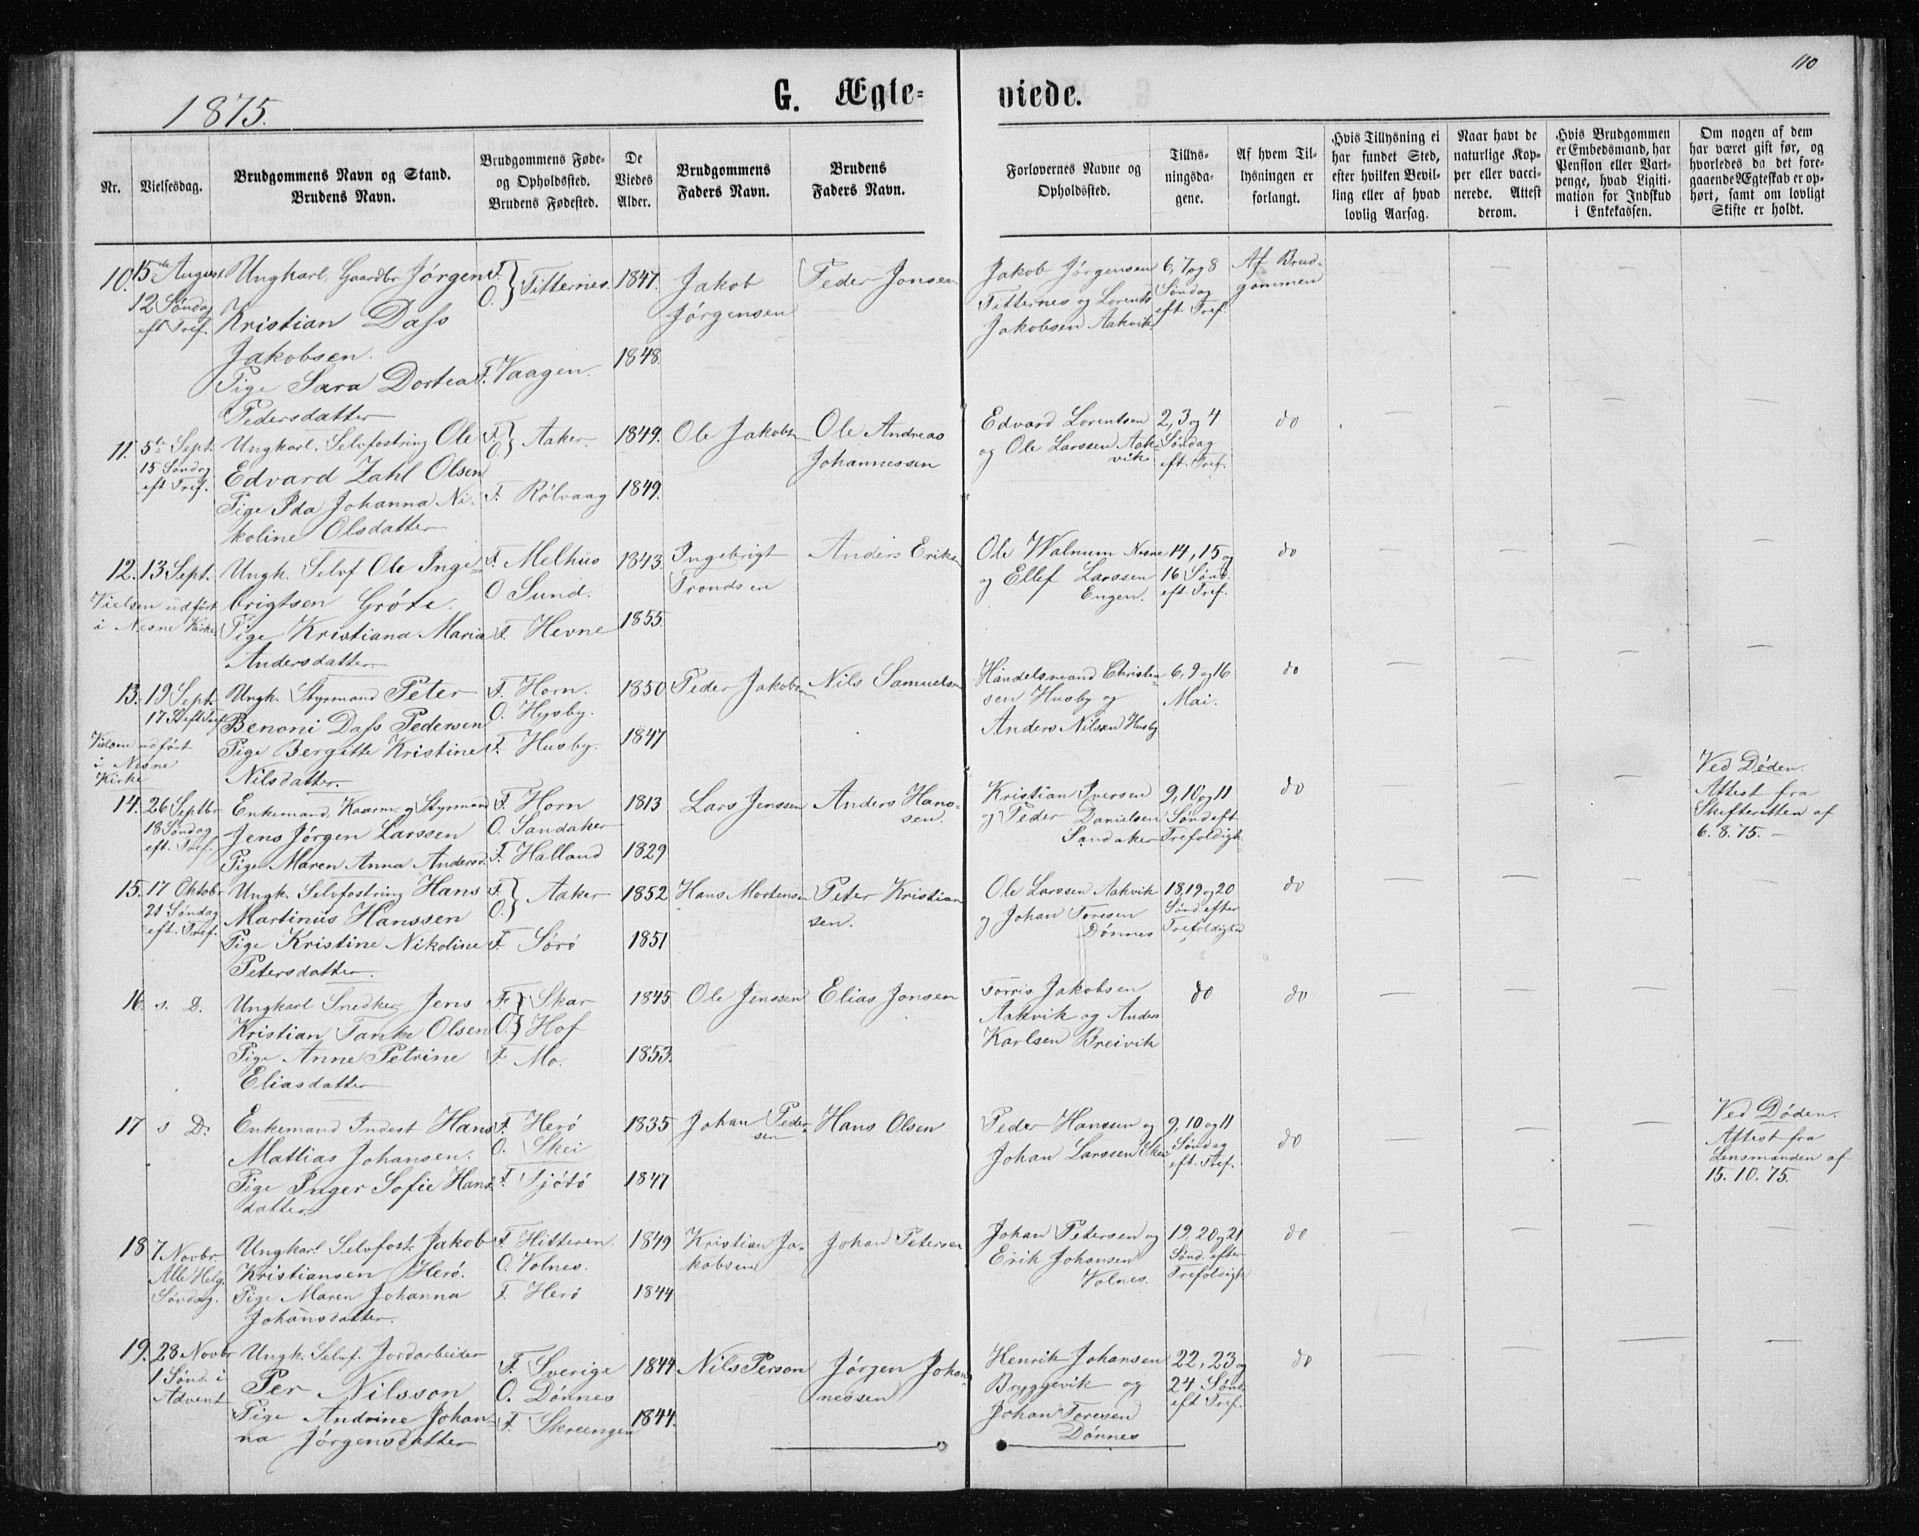 110
1875.
G. Ægte-
viede.
Nr.
Vielsesdag.
Brudgommens Navn og Stand.
Brudens Navn.
Brudgommens Føde-
og Opholdssted.
Brudens Fødested.
De
Viedes
Alder.
Brudgommens
Faders Navn.
Brudens
Faders Navn.
Forlovernes Navne og
Opholdssted.
Tillys-
ningsda-
gene.
Af hvem Til-
lysningen er
forlangt.
Hvis Tillysning ei
har fundet Sted,
efter hvilken Bevil-
ling eller af hvad
lovlig Aarsag.
Naar havt de
naturlige Kop-
per eller vacci-
nerede. Attest
derom.
Hvis Brudgommen
er Embedsmand, har
Pension eller Vart-
penge, hvad Ligiti-
mation for Indskud
i Enkekassen.
Om nogen af dem
har været gift før, og
hvorledes da det fore-
gaaende Ægteskab er op-
hørt, samt om lovligt
Skifte er holdt.
10.
15de August
12 Søndag
eft Tref.
Ungkarl. Gaardbr Jørgen
Kristian Dass
Jakobsen.
Pige Sara Dortea
Pedersdatter
F.
O. } Titternes.
F. Vaagen.
1847.
1848.
Jakob
Jørgensen
Peder Jonsen
Jakob Jørgensen
Titternes og Lorents
Jakobsen Aakvik
6, 7 og 8
Søndag
eft Tref.
Af Brud-
gommen
11.
5te Sept.
15 Søndag
eft Tref.
Ungkarl. Selvfostring Ole
Edvard Zahl Olsen
Pige Ida Johanna Ni-
koline Olsdatter
F.
O. } Aaker.
F. Rølvaag
1849.
1849.
Ole Jakobs
Ole Andreas
Johannessen
Edvard Lorentsen
og Ole Larssen Aak-
vik
2, 3 og 4
Søndag
eft. Tref.
do
12.
13 Sept.
Vielsen udført
i Nesne Kirke
Ungk. Selvf Ole Inge-
brigtsen Gröte.
Pige Kristiana Maria
Andersdatter
F. Melhus
O Sund.
F. Hevne
1843.
1855.
Ingebrigt
Trondsen
Anders Eriks
Ole Walnum Nesne
og Ellef Larssen
Engen.
14, 15 og
16 Sønd.
eft. Tref.
do
13.
19 Sept.
17 S eft Tref
Vielsen udført
i Nesne
Kirke
Ungk. Styrmand Peter
Benoni Dass Pedersen
Pige Bergitte Kristine
Nilsdatter
F. Horn.
O. Husby.
F. Husby.
1850
1847
Peder Jakobsen
Nils Samuelsen
Handelsmand Christen-
sen Husby og
Anders Nilsen Husby
6, 9 og 16
Mai.
do
14.
26 Septbr
18 Søndag
eft. Tref.
Enkemand, Kaarm. og Styrmand
Jens Jørgen Larssen
Pige Maren Anna Andersd.
F. Horn
O. Sandaker
F. Halland
1813
1829
Lars Jenssen
Anders Hans-
sen.
Kristian Iversen
og Peder Danielsen
Sandaker
9, 10 og 11
Sønd eft
Trefoldigh
do
Ved Døden.
Attest fra
Skifteretten af
6. 8. 75. –
15.
17 Oktobr
21 Søndag
eft. Tref.
Ungk. Selvfostring Hans
Martinus Hanssen
Pige Kristine Nikoline
Petersdatter.
F.
O. } Aaker
F. Sørø
1852
1851
Hans Mortensen
Peter Kristian
sen.
Ole Larssen Aakvik
og Johan Toresen
Dønnes
18, 19 og 20
Sønd efter
Trefoldighed
do
16.
s. D.
Ungkarl Snedker Jens
Kristian Tanke Olsen
Pige Anne Petrine
Eliasdatter
F. } Skar
O. } Hof
F. Mo.
1845
1853.
Ole Jenssen
Elias Jonsen
Torris Jakobsen
Aakvik og Anders
Karlsen Breivik
do
do
17
s D.
Enkemand Inderst Hans
Mattias Johansen.
Pige Inger Sofie Hans
datter
F. Herø
O. Skei
F. Sjötö
1835
1847
Johan Peder-
sen
Hans Olsen
Peder Hanssen og
Johan Larssen Skei
9, 10 og 11
Søndag
eft. Tref.
do
Ved Døden.
Attest fra
Lensmanden af
15. 10. 75.
18
7 Novbr
Alle Helg.
Søndag.
Ungkarl Selvfost. Jakob
Kristiansen Herö.
Pige Maren Johanna
Johansdatter.
F. Hitteren.
O. Volnes.
F. Herö
1849
1844
Kristian Ja-
kobsen
Johan Petersen
Johan Petersen og
Erik Johansen
Volnes.
19, 20 og 21
Sønd. efter
Trefoldigh
do
19.
28 Novbr
1 Sønd i
Advent
Ungk. Selvf. Jordarbeider
Per Nilsson
Pige Andrine Johan-
na Jørgensdatter
F. Sverige
O. Dønnes
F. Skreengen
1844
1844.
Nils Person
Jørgen Johan-
nessen
Henrik Johansen
Bryggevik og
Johan Toresen
Dønnes
22, 23 og
24 Sønd
eft Tref.
do